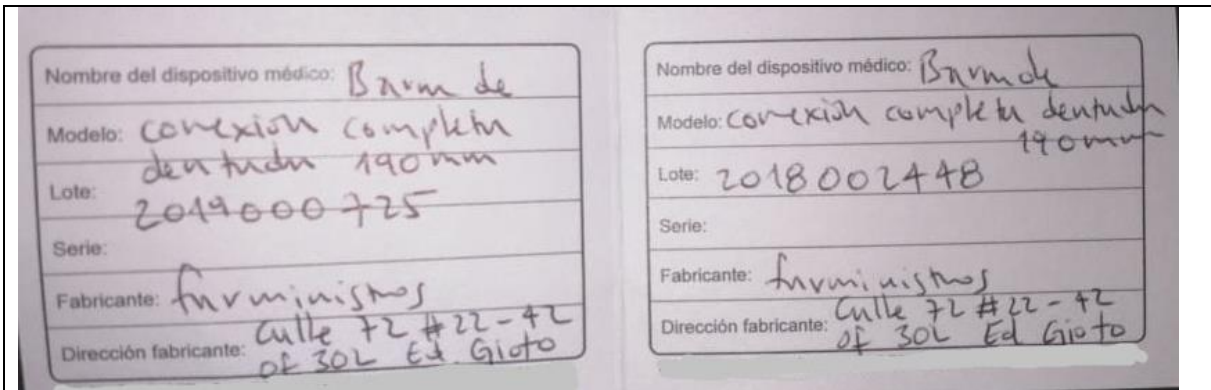 Nombre del dispositivo médico: Barra de
Modelo: conexión completa
dentada 190mm
Lote: 2019000725
Serie:
Fabricante:
Dirección fabricante: Calle 72 #22-42
of 302 Ed Gioto
Nombre del dispositivo médico: Barra de
Modelo: conexión completa dentada
190mm
Lote: 2018002448
Serie:
Fabricante:
Dirección fabricante: Calle 72 #22-42
of 302 Ed Gioto